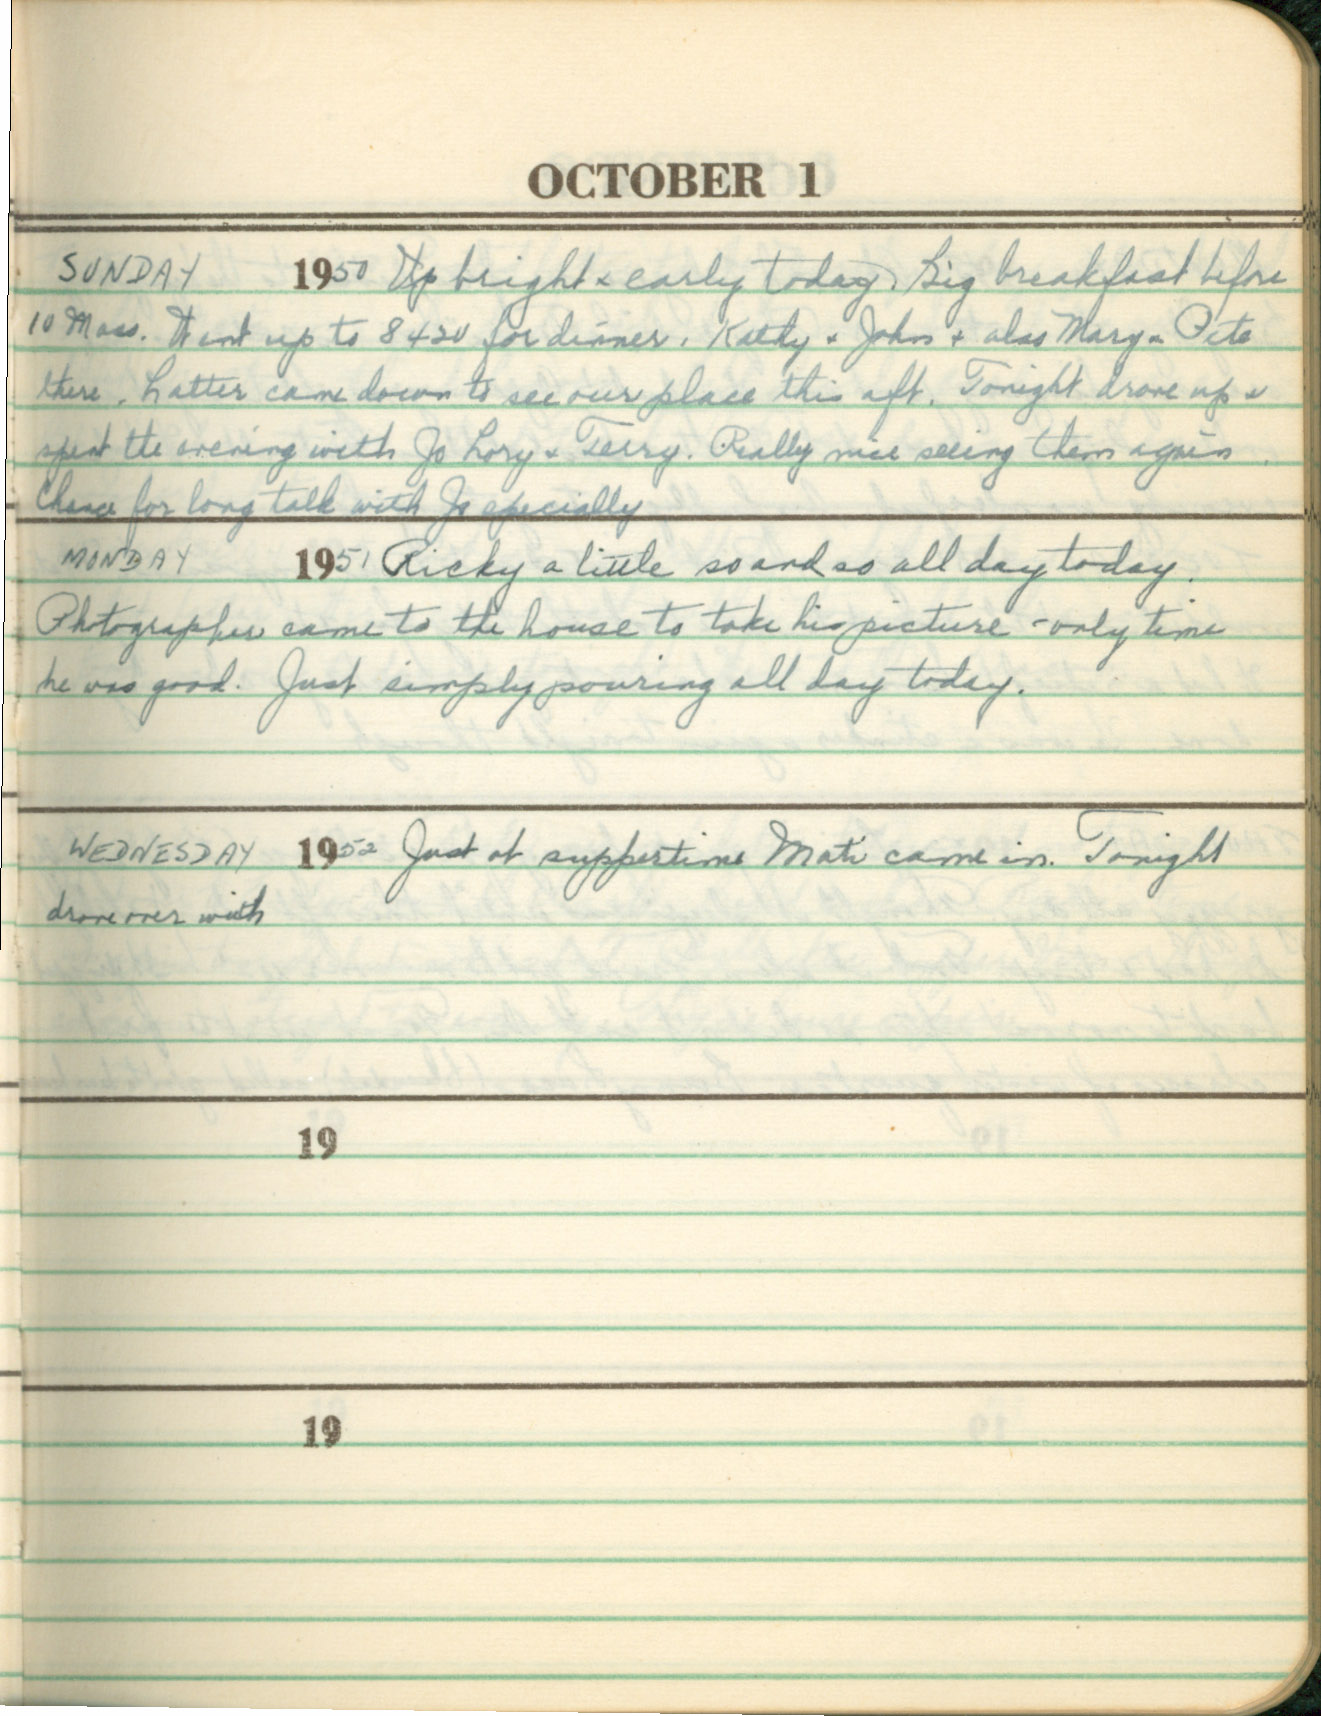 OCTOBER 1
SUNDAY 1950 Up bright & early today. Big breakfast before
10 Mass. Went up to 8420 for dinner. Kathy & John & also Mary & Pete
there. Latter came down to see our place this aft. Tonight drove up &
spent the evening with Jo Lory & Terry. Really nice seeing them again.
Chance for long talk with Jo specially
MONDAY 1951 Ricky a little so and so all day today.
Photographer came to the house to take his picture - only time
he was good. Just simply pouring all day today.
WEDNESDAY 1952 Just at suppertime Matt came in. Tonight
drove over with
19
19